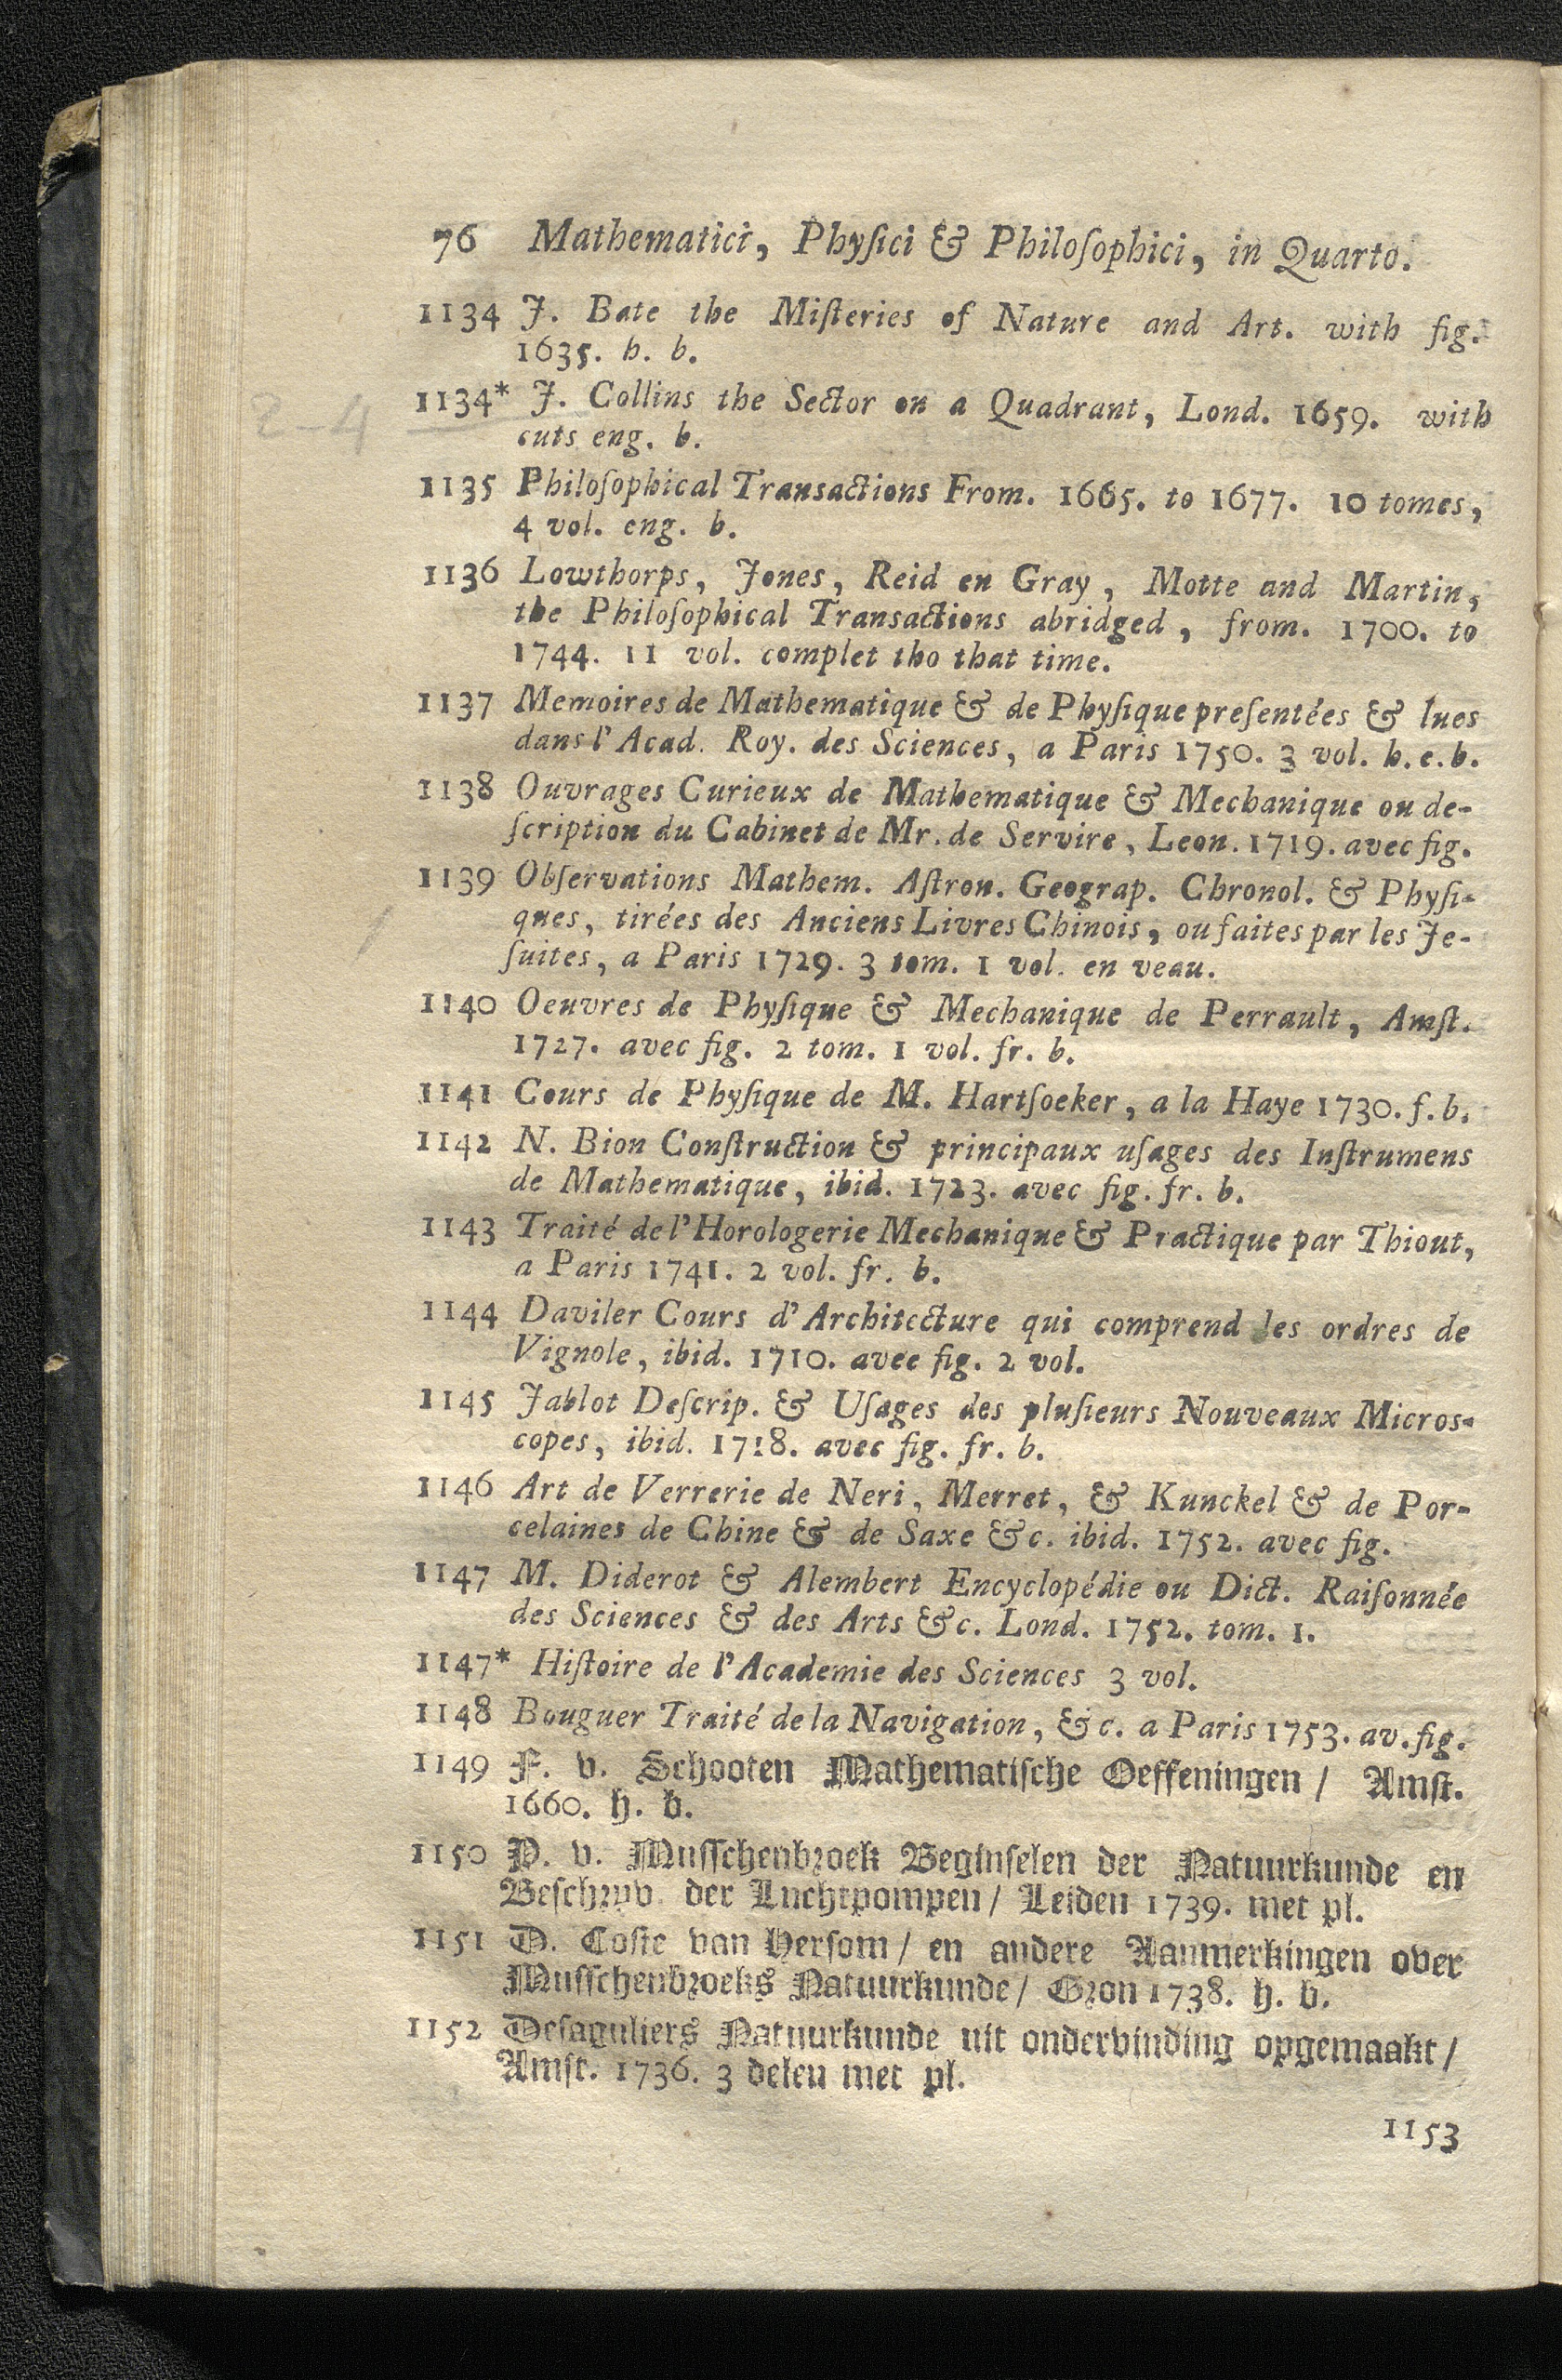 76 Mathematici, Phyſici & Philoſophici, in Quarto.
1134 J. Bate the Miſteries of Nature and Art. with fig.
1635. h. b.
1134* J. Collins the Sector on a Quadrant, Lond. 1659. with
2-4
cuts eng. b.
1135 Philoſophical Transactions From. 1665. to 1677. 10 tomes,
4 vol. eng. b.
1136 Lowthorps, Jones, Reid en Gray, Motte and Martin,
the Philoſophical Transactions abridged, from. 1700. to
1744. 11 vol. complet tho that time.
1137 Memoires de Mathematique & de Phyſique preſentées & lues
dans l'Acad. Roy. des Sciences, a Paris 1750. 3 vol. h. e. b.
1138 Ouvrages Curieux de Mathematique & Mechanique ou de-
ſcription du Cabinet de Mr. de Servire, Leon. 1719. avec fig.
1139 Obſervations Mathem. Aſtron. Geograp. Chronol. & Phyſi-
ques, tirées des Anciens Livres Chinois, ou faites par les Je-
ſuites, a Paris 1729. 3 tom. 1 vol. en veau.
1140 Oeuvres de Phyſique & Mechanique de Perrault, Amſt.
1727. avec fig. 2 tom. 1 vol. fr. b.
1141 Cours de Phyſique de M. Hartſoeker, a la Haye 1730. f. b.
1142 N. Bion Conſtruction & principaux uſages des Inſtrumens
de Mathematique, ibid. 1723. avec fig. fr. b.
1143 Traité de l'Horologerie Mechanique & Practique par Thiout,
a Paris 1741. 2 vol. fr. b.
1144 Daviler Cours d'Architecture qui comprend les ordres de
Vignole, ibid. 1710. avec fig. 2 vol.
1145 Jablot Deſcrip. & Uſages des pluſieurs Nouveaux Micros-
copes, ibid. 1718. avec fig. fr. b.
1146 Art de Verrerie de Neri, Merret, & Kunckel & de Por-
celaines de Chine & de Saxe &c. ibid. 1752. avec fig.
1147 M. Diderot & Alembert Encyclopédie ou Dict. Raiſonnée
des Sciences & des Arts &c. Lond. 1752. tom. 1.
1147* Hiſtoire de l'Academie des Sciences 3 vol.
1148 Bouguer Traité de la Navigation, &c. a Paris 1753. av. fig.
1149 F. v. Schooten Mathematiſche Oeffeningen / Amſt.
1660. h. b.
1150 P. v. Muſſchenbroek Beginſelen der Natuurkunde en
Beſchryv. der Luchtpompen / Leiden 1739. met pl.
1151 D. Coſte van Herſom / en andere Aanmerkingen over
Muſſchenbroeks Natuurkunde / Gron 1738. h. b.
1152 Deſaguliers Natuurkunde uit ondervinding opgemaakt /
Amſt. 1736. 3 delen met pl.
1153